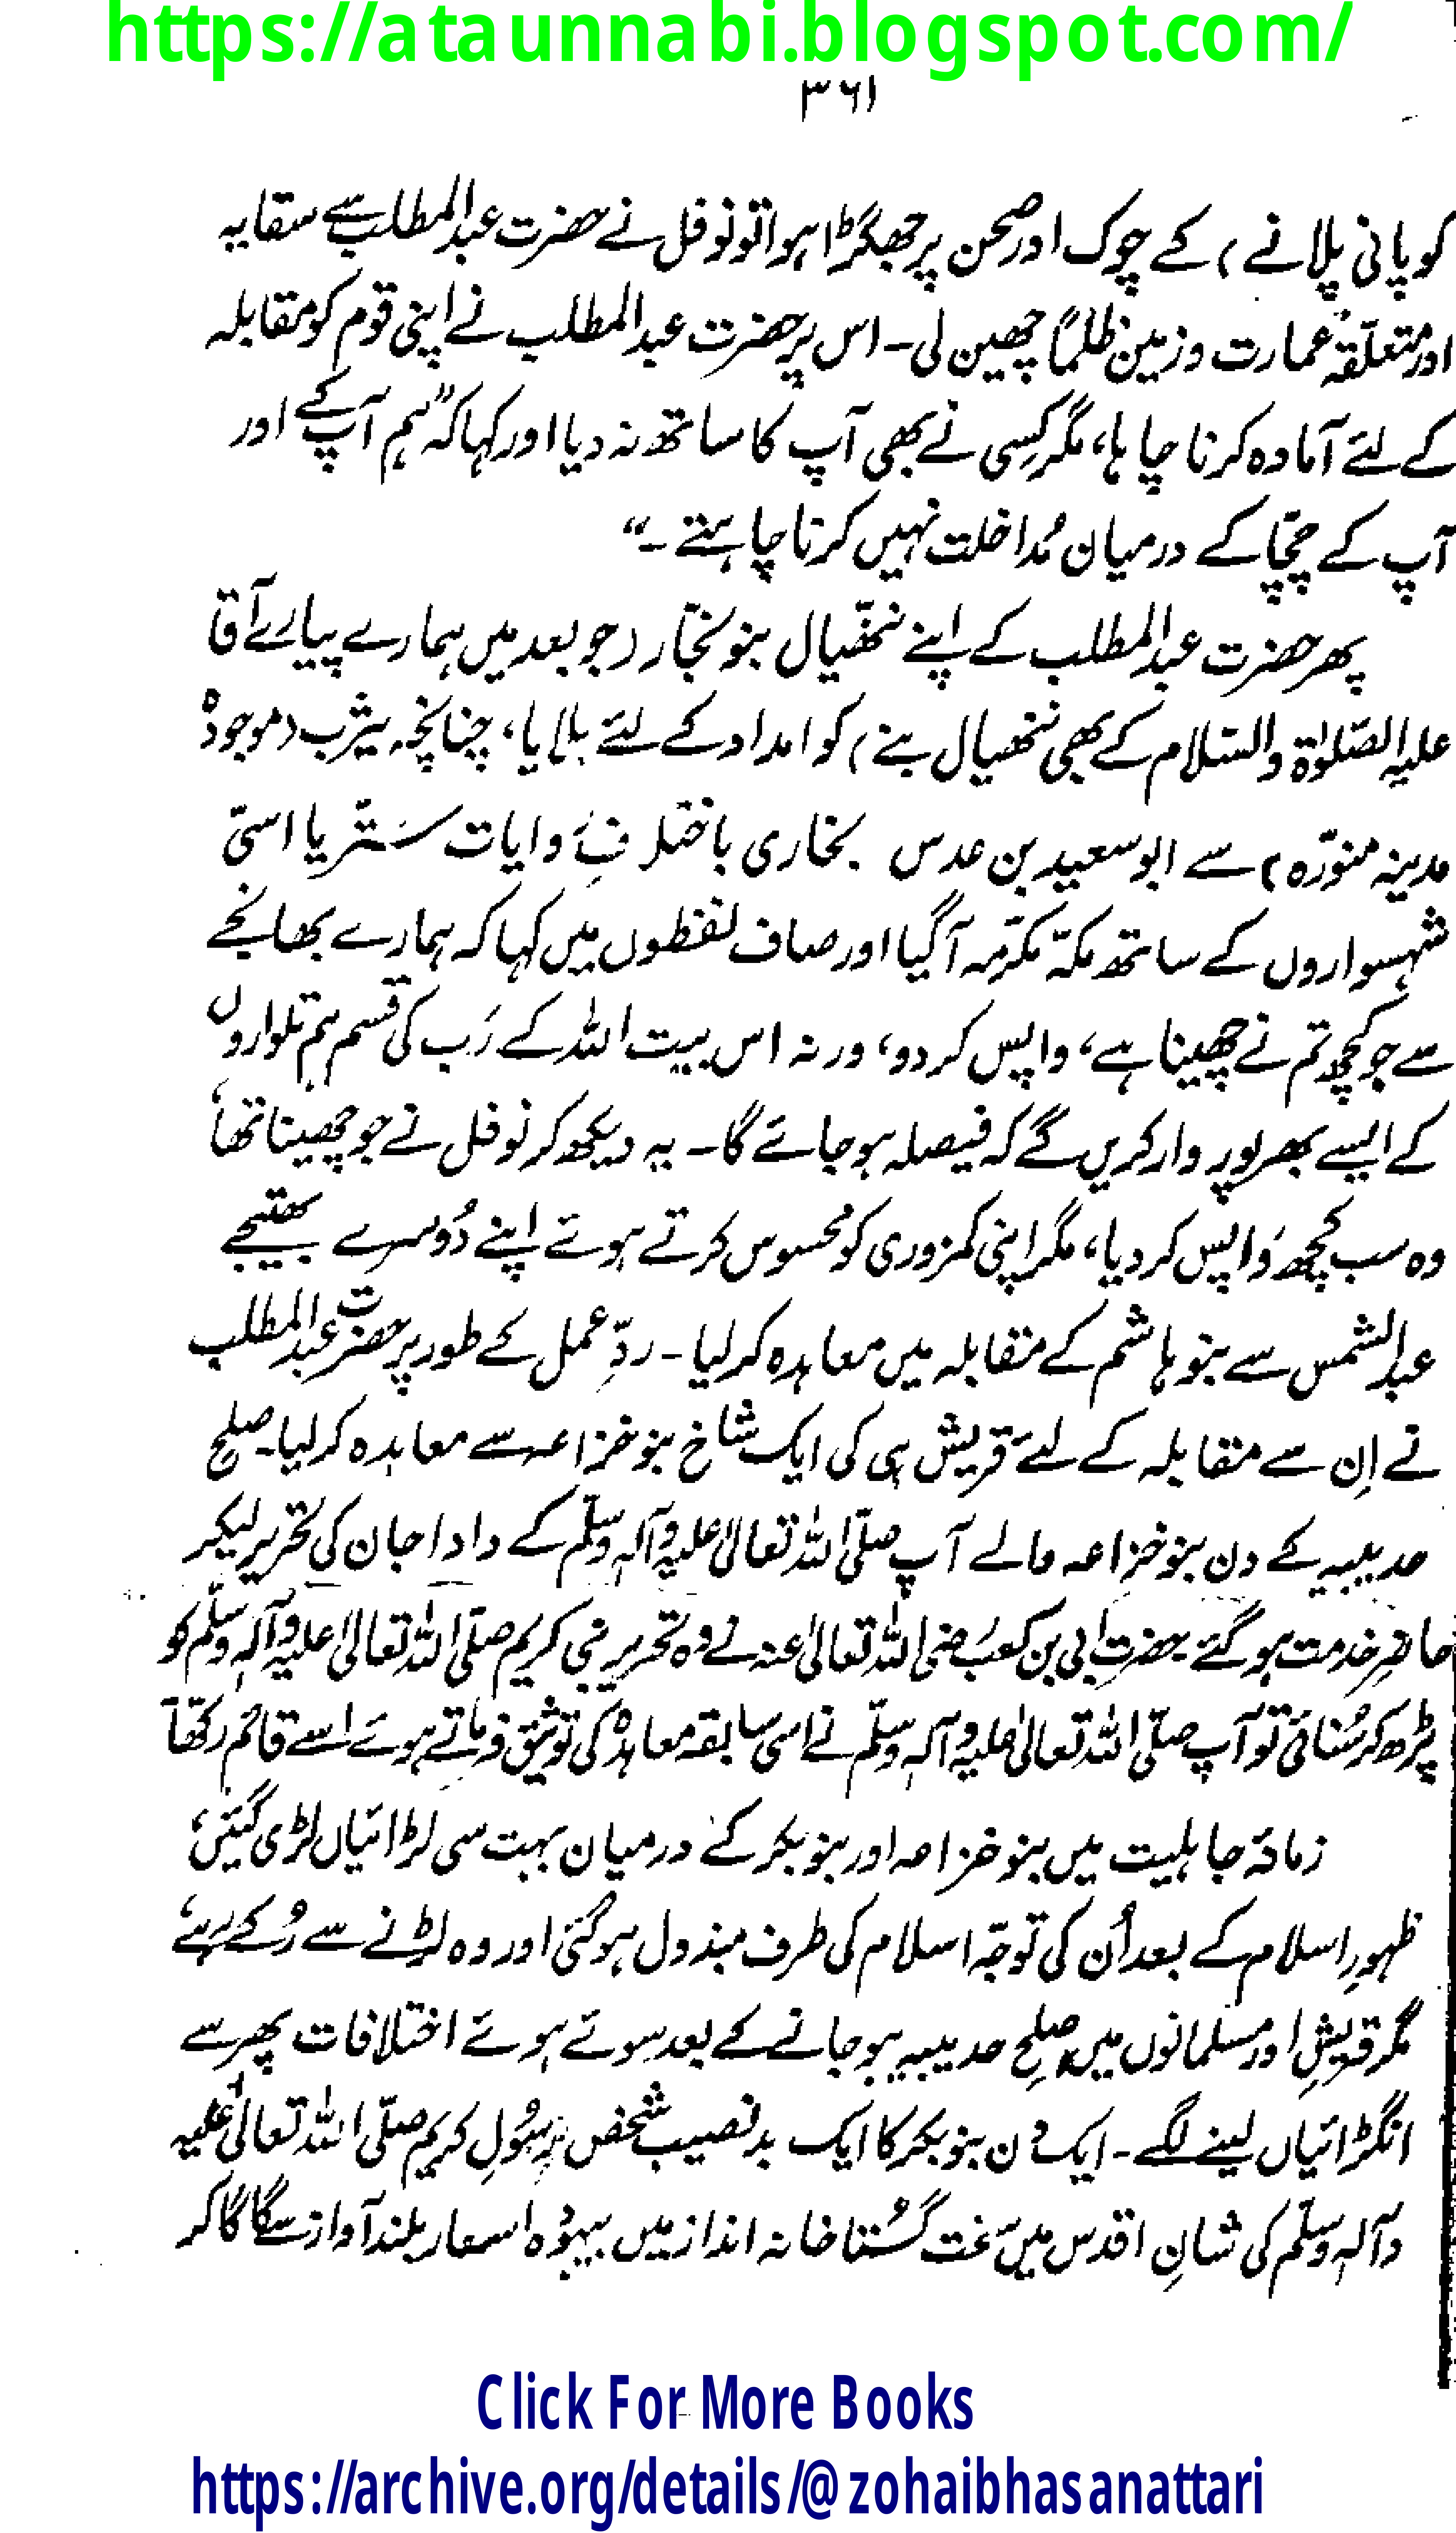 https://ataunnabi.blogspot.com/
۳۶۱
کو پانی پلانے) کے چوک اور صحن پر جھگڑا ہوا تو نوفل نے حضرت عبدالمطلب سے سقایہ
اور متعلّقہ عمارت و زمین ظلماً چھین لی۔ اس پر حضرت عبدالمطلب نے اپنی قوم کو مقابلہ
کے لئے آمادہ کرنا چاہا، مگر کسی نے بھی آپ کا ساتھ نہ دیا اور کہا کہ ”ہم آپ کے اور
آپ کے چچّا کے درمیان مُداخلت نہیں کرنا چاہتے۔“
پھر حضرت عبدالمطلب کے اپنے ننھیال بنو نجّار (جو بعد میں ہمارے پیارے آقا
علیہ الصّلوٰۃ والسّلام کے بھی ننھیال بنے) کو امداد کے لئے بلایا، چنانچہ یثرب (موجودہ
مدینہ منوّرہ) سے ابو سعید بن عدس بخاری باختلافِ روایات ستّر یا اسیّ
شہسواروں کے ساتھ مکّہ مکرّمہ آگیا اور صاف لفظوں میں کہا کہ ہمارے بھانجے
سے جو کچھ تم نے چھینا ہے، واپس کر دو، ورنہ اس بیت اللہ کے رَب کی قسم ہم تلواروں
کے ایسے بھرپور وار کریں گے کہ فیصلہ ہو جائے گا۔ یہ دیکھ کر نوفل نے جو چھینا تھا،
وہ سب کچھ واپس کر دیا، مگر اپنی کمزوری کو محسوس کرتے ہوئے اپنے دُوسرے بھتیجے
عبدالشمس سے بنو ہاشم کے مقابلہ میں معاہدہ کر لیا۔ ردِّ عمل کے طور پر حضرت عبدالمطلب
نے اِن سے مقابلہ کے لئے قریش ہی کی ایک شاخ بنو خزاعہ سے معاہدہ کر لیا۔ صلح
حدیبیہ کے دن بنو خزاعہ والے آپ صلّی اللہ تعالیٰ علیہ وآلہٖ وسلّم کے دادا جان کی تحریر لیکر
حاضرِ خدمت ہو گئے۔ حضرت ابی بن کعب رضی اللہ تعالیٰ عنہ نے وہ تحریر نبی کریم صلّی اللہ تعالیٰ علیہ وآلہٖ وسلّم کو
پڑھ کر سُنائی تو آپ صلّی اللہ تعالیٰ علیہ وآلہٖ وسلّم نے اسی سابقہ معاہدہ کی توثیق فرماتے ہوئے اسے قائم رکھّا۔
زمانۂ جاہلیت میں بنو خزاعہ اور بنو بکر کے درمیان بہت سی لڑائیاں لڑی گئیں،
ظہورِ اسلام کے بعد اُن کی توجّہ اسلام کی طرف مبذول ہو گئی اور وہ لڑنے سے رُکے رہے،
مگر قریش اور مسلمانوں میں صلح حدیبیہ ہو جانے کے بعد سوئے ہوئے اختلافات پھر سے
انگڑائیاں لینے لگے۔ ایک دن بنو بکر کا ایک بدنصیب شخص رسُولِ کریم صلّی اللہ تعالیٰ علیہ
وآلہٖ وسلّم کی شانِ اقدس میں سخت گُستاخانہ انداز میں بیہوُدہ اشعار بلند آواز سے گا گا کر
Click For More Books
https://archive.org/details/@zohaibhasanattari